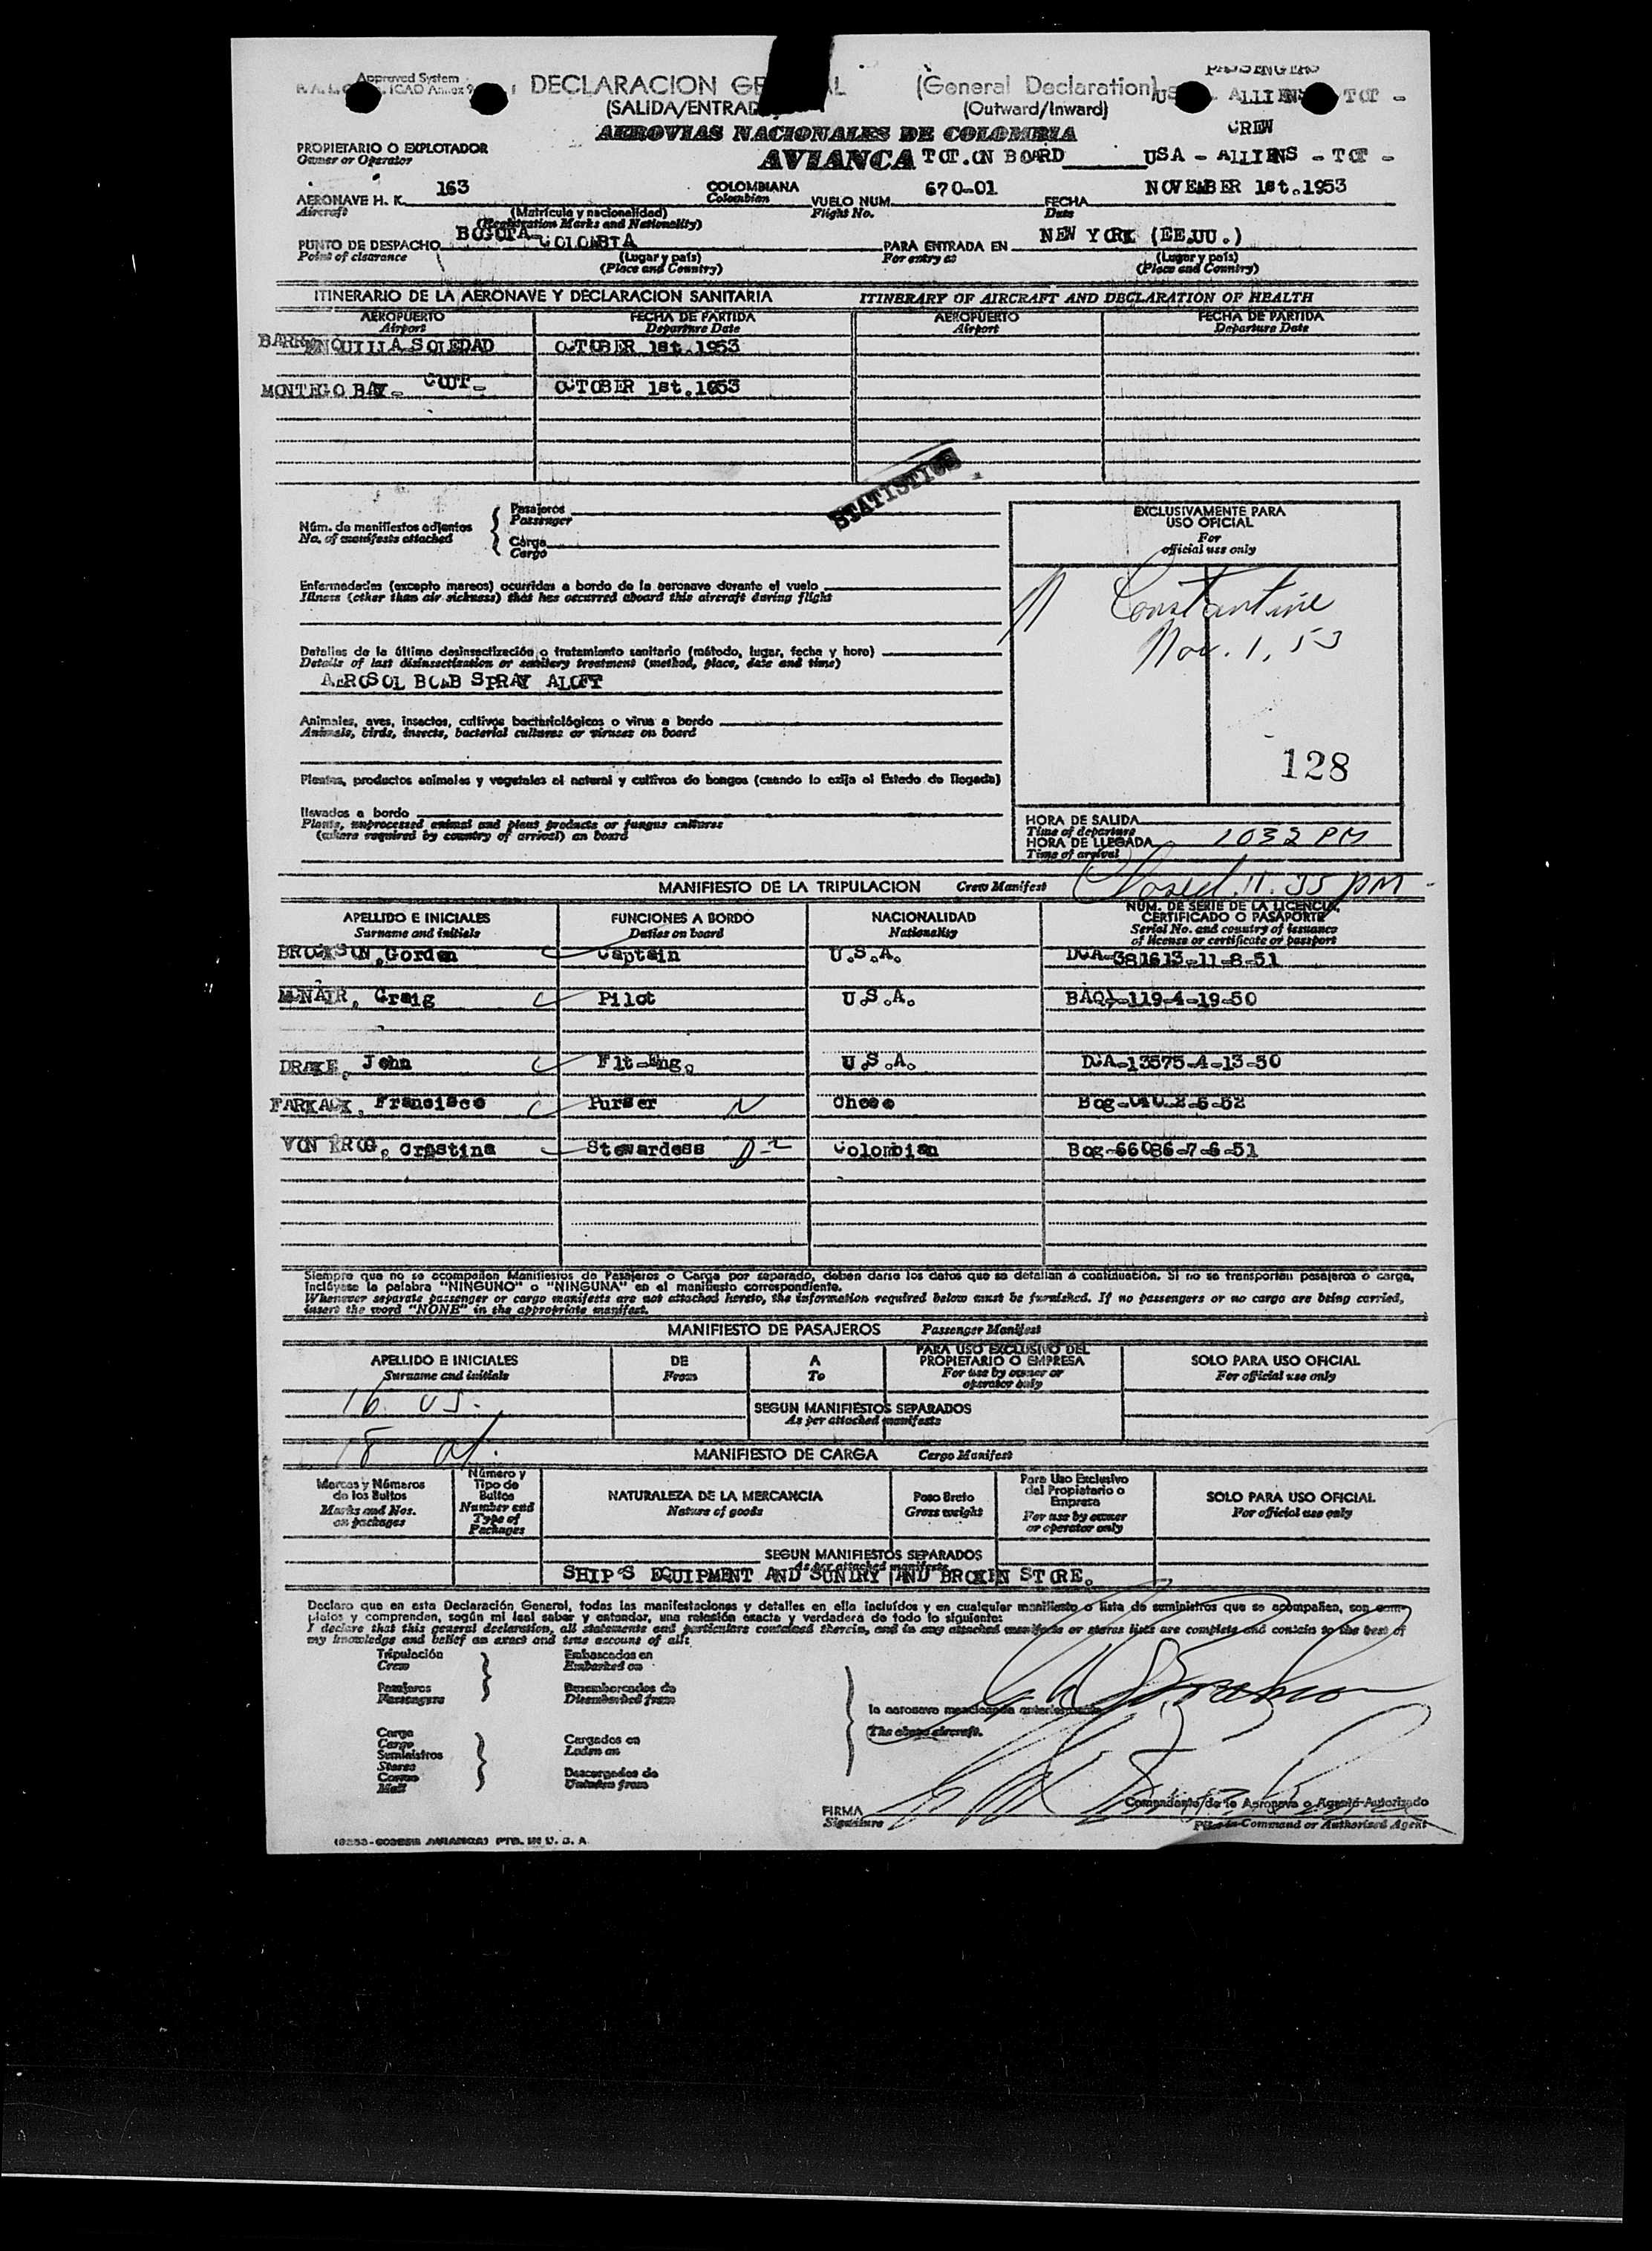 Approved System
ICAO Annex 9
DECLARACION GE AL (General Declaration)
PASSENGERS
(SALIDA/ENTRAD (Outward/Inward)
US ALLIENS TOT -
CREW
AEROVIAS NACIONALES DE COLOMBIA
PROPIETARIO O EXPLOTADOR
Owner or Operator
AVIANCA TOT.ON BOARD USA - ALLIENS - TOT -
AERONAVE H. K. 163 COLOMBIANA VUELO NUM. 670-01 FECHA NOVEMBER 1st.1953
Aircraft Colombian Flight No. Date
(Matrícula y nacionalidad)
(Registration Marks and Nationality)
PUNTO DE DESPACHO BOGOTA-COLOMBIA PARA ENTRADA EN NEW YORK (EE.UU.)
Point of clearance (Lugar y país) For entry at (Lugar y país)
(Place and Country) (Place and Country)
ITINERARIO DE LA AERONAVE Y DECLARACION SANITARIA ITINERARY OF AIRCRAFT AND DECLARATION OF HEALTH
AEROPUERTO FECHA DE PARTIDA AEROPUERTO FECHA DE PARTIDA
Airport Departure Date Airport Departure Date
BARRANQUILLA SOLEDAD OCTOBER 1st.1953
MONTEGO BAY- OCTOBER 1st.1953
STATISTICS
Núm. de manifiestos adjuntos Pasajeros
No. of manifests attached Passenger
Carga
Cargo
EXCLUSIVAMENTE PARA
USO OFICIAL
For
official use only
Constantine
Nov. 1, 53
128
Enfermedades (excepto mareos) ocurridas a bordo de la aeronave durante el vuelo
Illness (other than air sickness) that has occurred aboard this aircraft during flight
Detalles de la última desinsectización o tratamiento sanitario (método, lugar, fecha y hora)
Details of last disinsectization or sanitary treatment (method, place, date and time)
AEROSOL BOMB SPRAY ALOFT
Animales, aves, insectos, cultivos bacteriológicos o virus a bordo
Animals, birds, insects, bacterial cultures or viruses on board
Plantas, productos animales y vegetales al natural y cultivos de hongos (cuando lo exija el Estado de llegada)
llevados a bordo
Plants, unprocessed animal and plant products or fungus cultures
(where required by country of arrival) on board
HORA DE SALIDA
Time of departure
HORA DE LLEGADA 1032 PM
Time of arrival
MANIFIESTO DE LA TRIPULACION Crew Manifest Closed 11.35 PM
APELLIDO E INICIALES FUNCIONES A BORDO NACIONALIDAD NUM. DE SERIE DE LA LICENCIA, CERTIFICADO O PASAPORTE
Surname and initials Duties on board Nationality Serial No. and country of issuance of license or certificate or passport
Gorden Captain U.S.A. DCA-381613-11-8-51
MCNAIR, Craig Pilot U.S.A. BAQ-119-4-19-50
DRAKE, John Flt-Eng. U.S.A. DCA-13575-4-13-50
Francisco Purser N
VON KROG, Crestina Stewardess Colombian Bog-66086-7-6-51
Siempre que no se acompañen Manifiestos de Pasajeros o Carga por separado, deben darse los datos que se detallan a continuación. Si no se transportan pasajeros o carga,
inclúyese la palabra "NINGUNO" o "NINGUNA" en el manifiesto correspondiente.
Whenever separate passenger or cargo manifests are not attached hereto, the information required below must be furnished. If no passengers or no cargo are being carried,
insert the word "NONE" in the appropriate manifest.
MANIFIESTO DE PASAJEROS Passenger Manifest
APELLIDO E INICIALES DE A PARA USO EXCLUSIVO DEL PROPIETARIO O EMPRESA SOLO PARA USO OFICIAL
Surname and initials From To For use by owner or operator only For official use only
16 US.
SEGUN MANIFIESTOS SEPARADOS
As per attached manifests
18 al.
MANIFIESTO DE CARGA Cargo Manifest
Marcas y Números de los Bultos Número y Tipo de Bultos NATURALEZA DE LA MERCANCIA Peso Bruto Para Uso Exclusivo del Propietario o Empresa SOLO PARA USO OFICIAL
Marks and Nos. on packages Number and Type of Packages Nature of goods Gross weight For use by owner or operator only For official use only
SEGUN MANIFIESTOS SEPARADOS
As per attached manifests
SHIP'S EQUIPMENT AND SUNDRY AND BROKEN STORE.
Declaro que en esta Declaración General, todas las manifestaciones y detalles en ella incluídos y en cualquier manifiesto o lista de suministros que se acompañen, son com-
pletos y comprenden, según mi leal saber y entender, una relación exacta y verdadera de todo lo siguiente:
I declare that this general declaration, all statements and particulars contained therein, and in any attached manifests or stores lists are complete and contain to the best of
my knowledge and belief an exact and true account of all:
Tripulación Embarcados en
Crew Embarked on
Pasajeros Desembarcados de
Passengers Disembarked from
la aeronave mencionada anteriormente
The above aircraft.
Carga
Cargo Cargados en
Suministros Laden on
Stores
Correo Descargados de
Mail Unladen from
FIRMA Comandante de la Aeronave o Agente Autorizado
Signature Pilot-in-Command or Authorized Agent
AVIANCA) PTD. IN U. S. A.